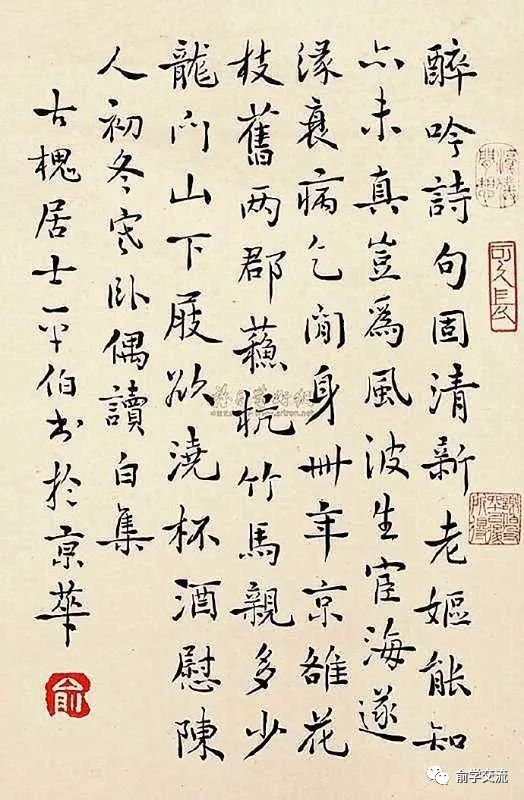 醉吟詩句固清新老嫗能知
亦未真豈爲風波生宦海遂
緣衰病乞閒身卅年京雒花
枝舊两郡蘓杭竹馬親多少
龍门山下屐欲澆杯酒慰陳
人初冬寒卧偶讀白集
古槐居士平伯书於京華
俞
俞学交流